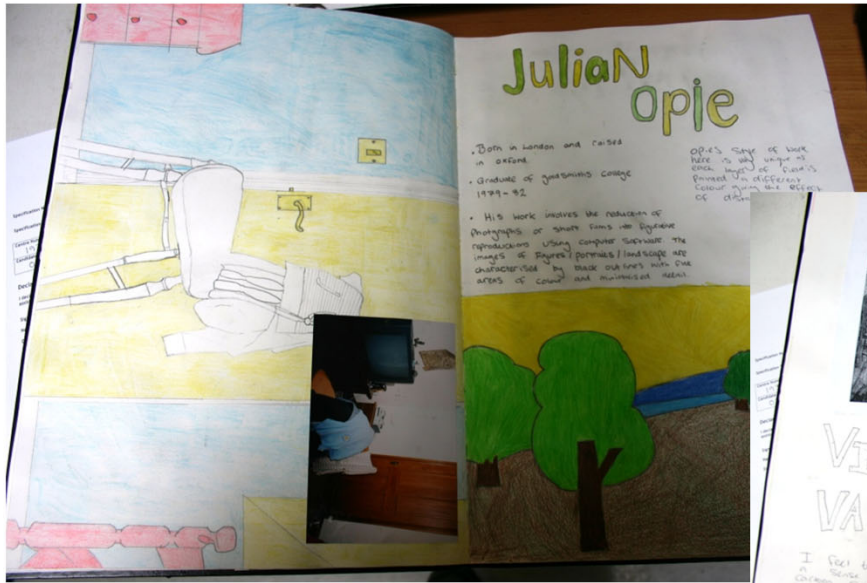 JuliaN
Opie
• Born in London and raised
in oxford.
• Graduate of goldsmiths college
1979-82
• His work involves the reduction of
photgraphs or short films into figurative
reproductions using computer software. The
images of figures/portraits/landscape are
characterised by black outlines with flat
areas of colour and minimised detail.
Opie's style of work
here is very unique as
each layer of field is
painted a different
colour giving the effect
of
VI
VA
I feel